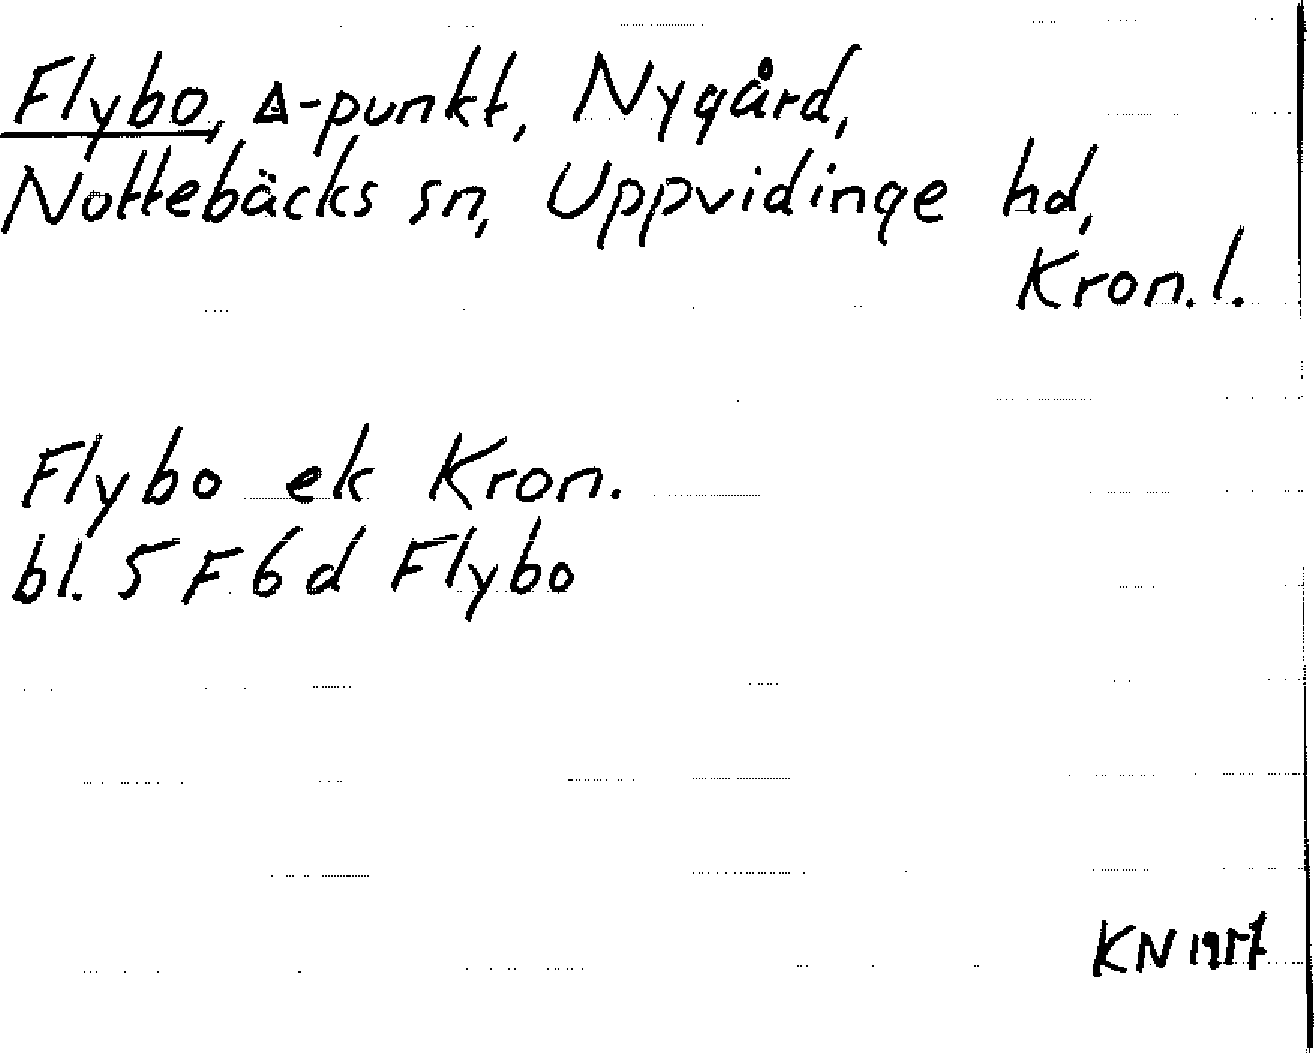 Flybo, Δ-punkt, Nygård,
Nottebäcks sn, Uppvidinge hd,
Kron. l.
Flybo ek Kron.
bl. 5 F 6 d Flybo
KN 1957